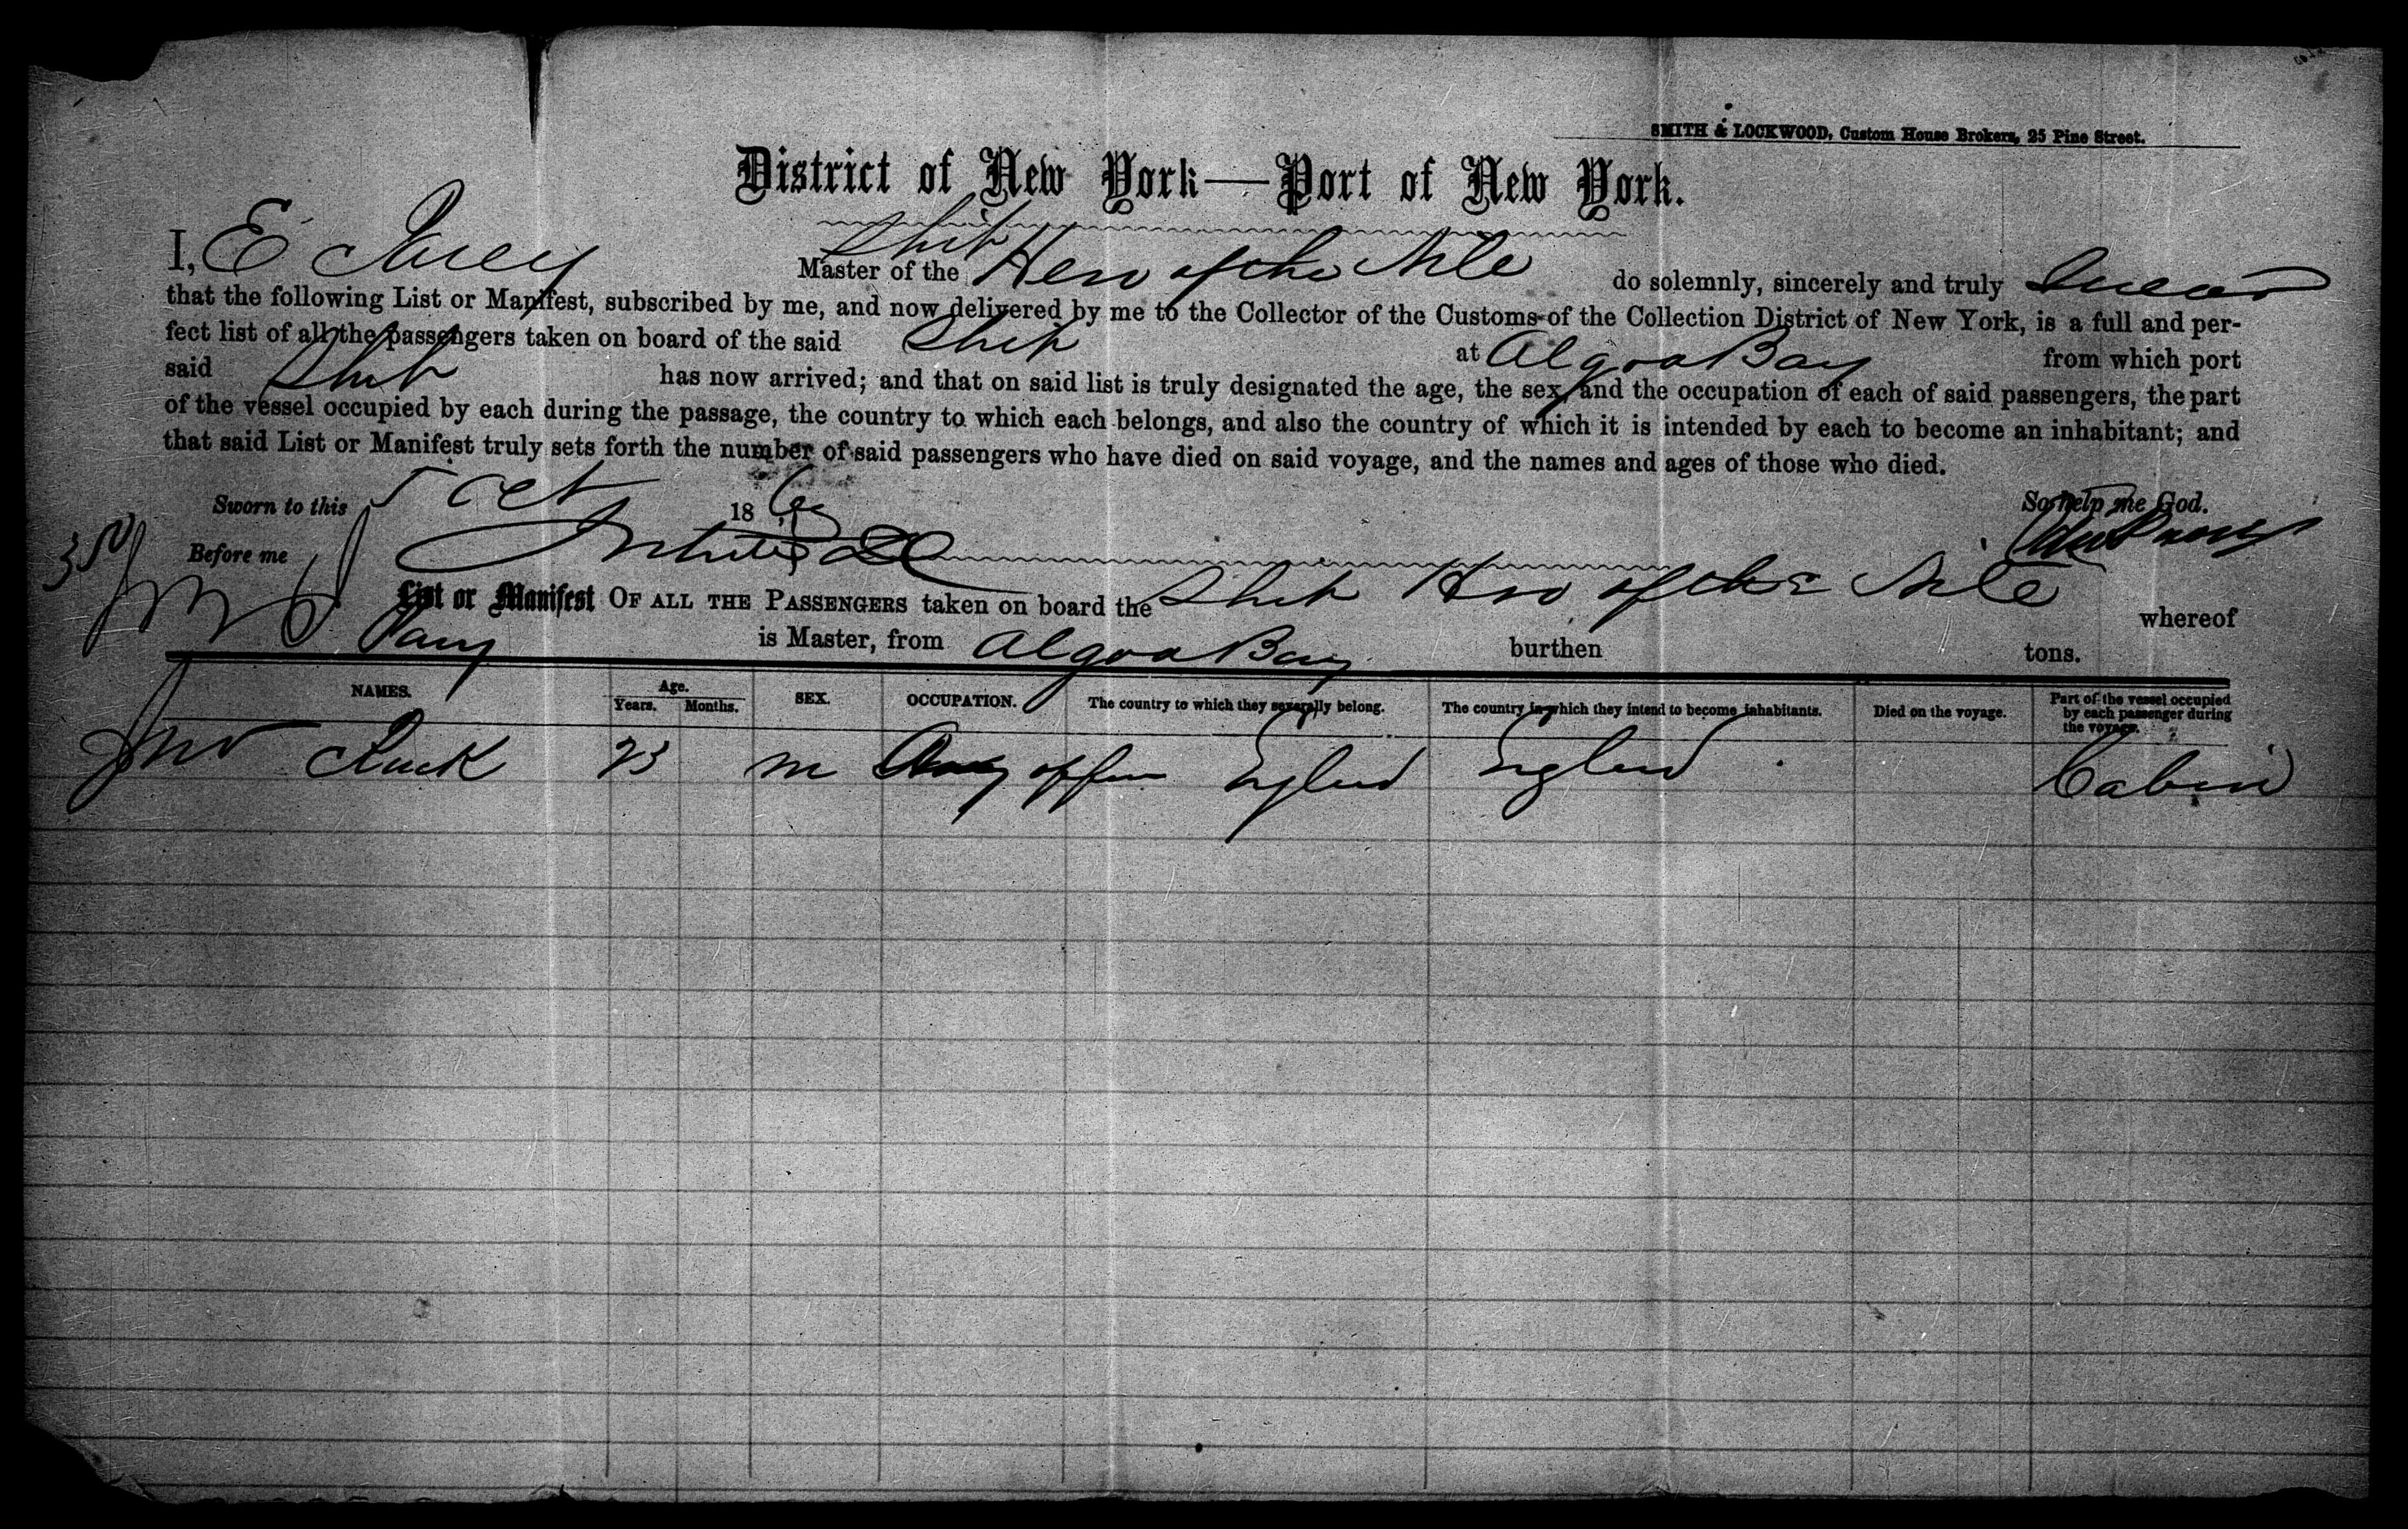 SMITH & LOCKWOOD, Custom House Brokers, 25 Pine Street.
District of New York—Port of New York.
I, E Ship
Master of the Hero of the Nile do solemnly, sincerely and truly swear
that the following List or Manifest, subscribed by me, and now delivered by me to the Collector of the Customs of the Collection District of New York, is a full and per-
fect list of all the passengers taken on board of the said Ship at Algoa Bay from which port
said Ship has now arrived; and that on said list is truly designated the age, the sex, and the occupation of each of said passengers, the part
of the vessel occupied by each during the passage, the country to which each belongs, and also the country of which it is intended by each to become an inhabitant; and
that said List or Manifest truly sets forth the number of said passengers who have died on said voyage, and the names and ages of those who died.
Sworn to this 5 Oct 18 So help me God.
Before me
List or Manifest OF ALL THE PASSENGERS taken on board the Ship Hero of the Nile whereof
is Master, from Algoa Bay burthen tons.
NAMES. Age. Years. Months. SEX. OCCUPATION. The country to which they severally belong. The country in which they intend to become inhabitants. Died on the voyage. Part of the vessel occupied by each passenger during the voyage.
Jno 23 m Army England England Cabin